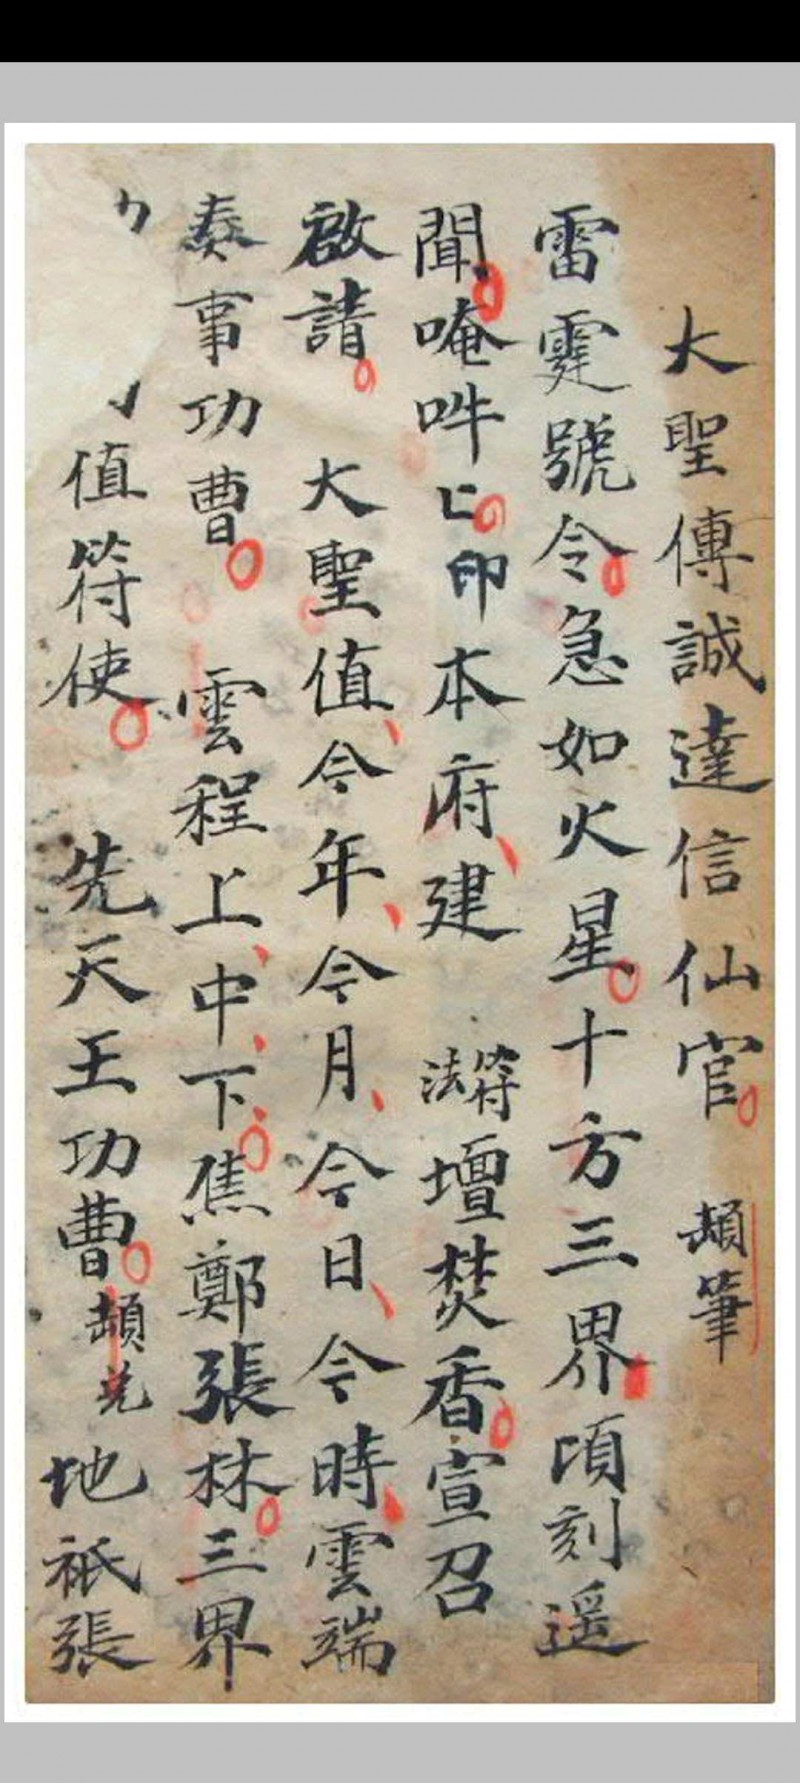 大聖傳誠達信仙官 頩筆
雷霆號令急如火星十方三界頃刻遥
聞唵吽㔾印本府建 符法壇焚香宣召
啟請 大聖值今年今月今日今時雲端
奏事功曹 雲程上中下焦鄭張林三界
值符使 先天王功曹 地祇張